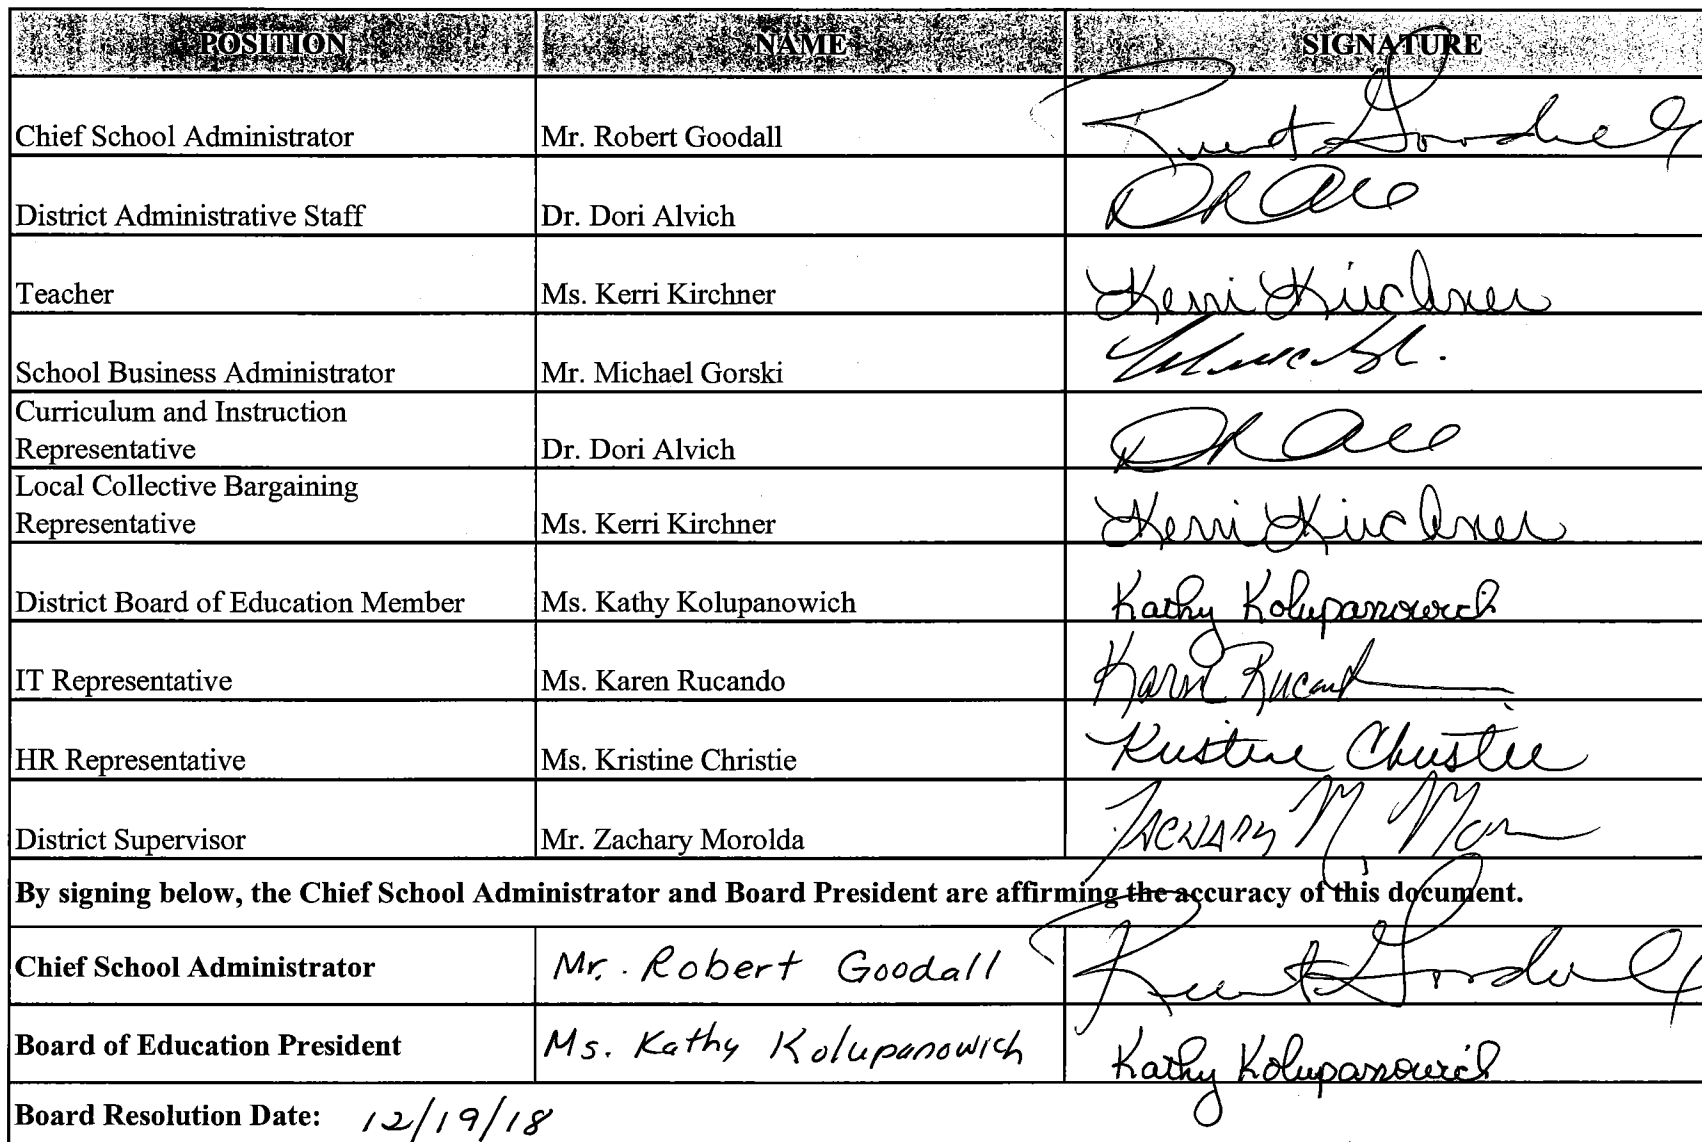 POSITION NAME SIGNATURE
Chief School Administrator Mr. Robert Goodall
District Administrative Staff Dr. Dori Alvich
Teacher Ms. Kerri Kirchner Kerri Kirchner
School Business Administrator Mr. Michael Gorski
Curriculum and Instruction
Representative Dr. Dori Alvich
Local Collective Bargaining
Representative Ms. Kerri Kirchner Kerri Kirchner
District Board of Education Member Ms. Kathy Kolupanowich Kathy Kolupanowich
IT Representative Ms. Karen Rucando
HR Representative Ms. Kristine Christie Kristine Christie
District Supervisor Mr. Zachary Morolda Zachary M
By signing below, the Chief School Administrator and Board President are affirming the accuracy of this document.
Chief School Administrator Mr. Robert Goodall
Board of Education President Ms. Kathy Kolupanowich Kathy Kolupanowich
Board Resolution Date: 12/19/18